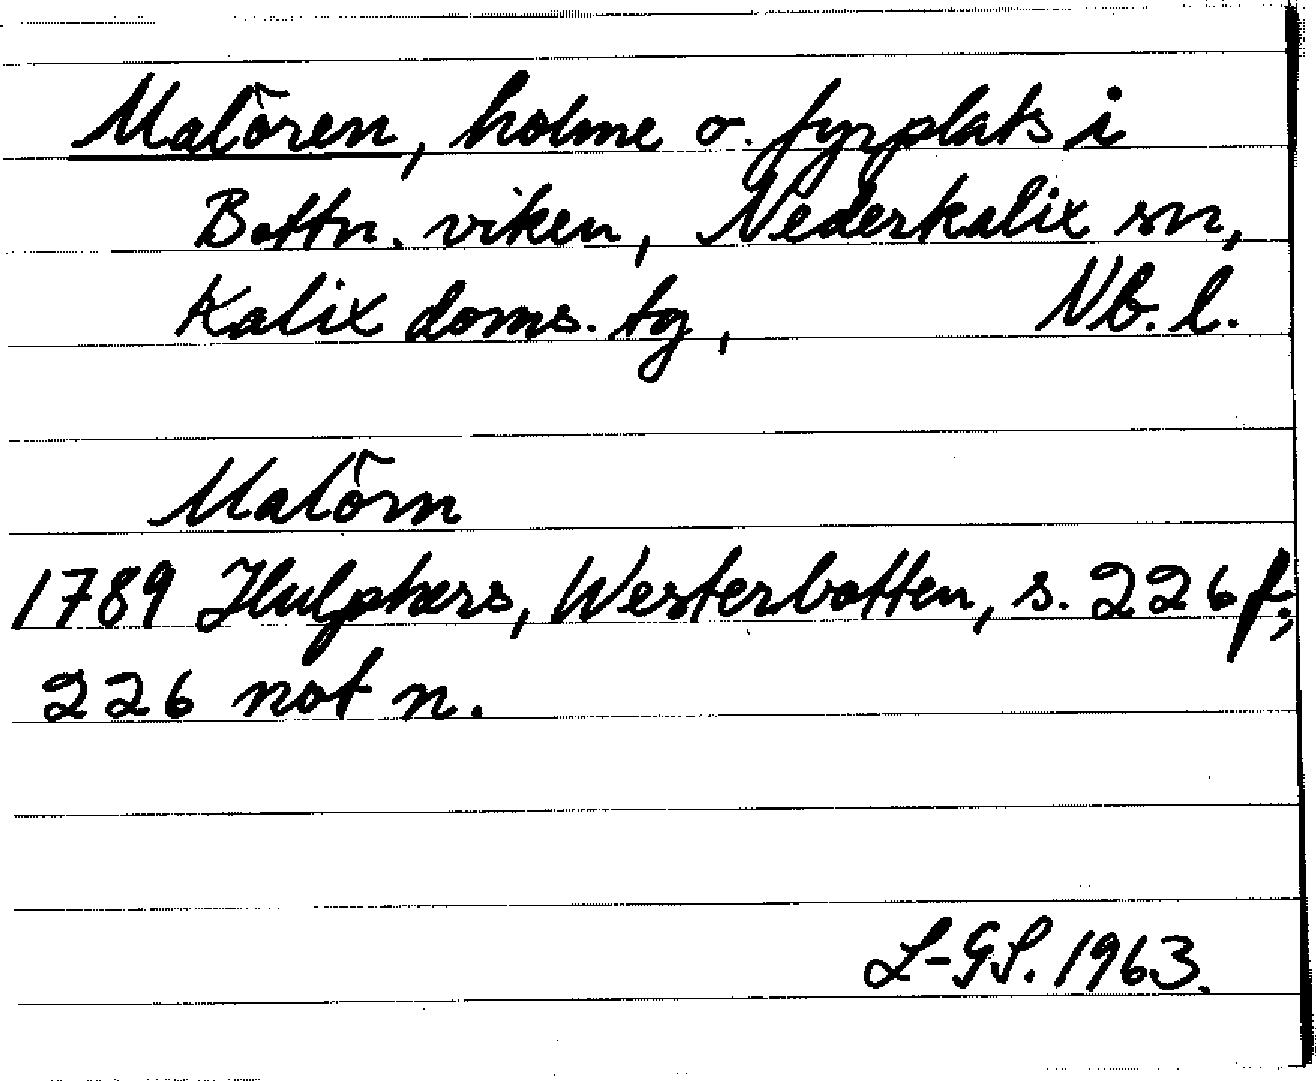 Malören, holme o. fyrplats i
Bottn. viken, Nederkalix sn,
Kalix doms. tg, Nb. l.
Malörn
1789 Hulphers, Westerbotten, s. 226 f;
226 not n.
L-GS. 1963.